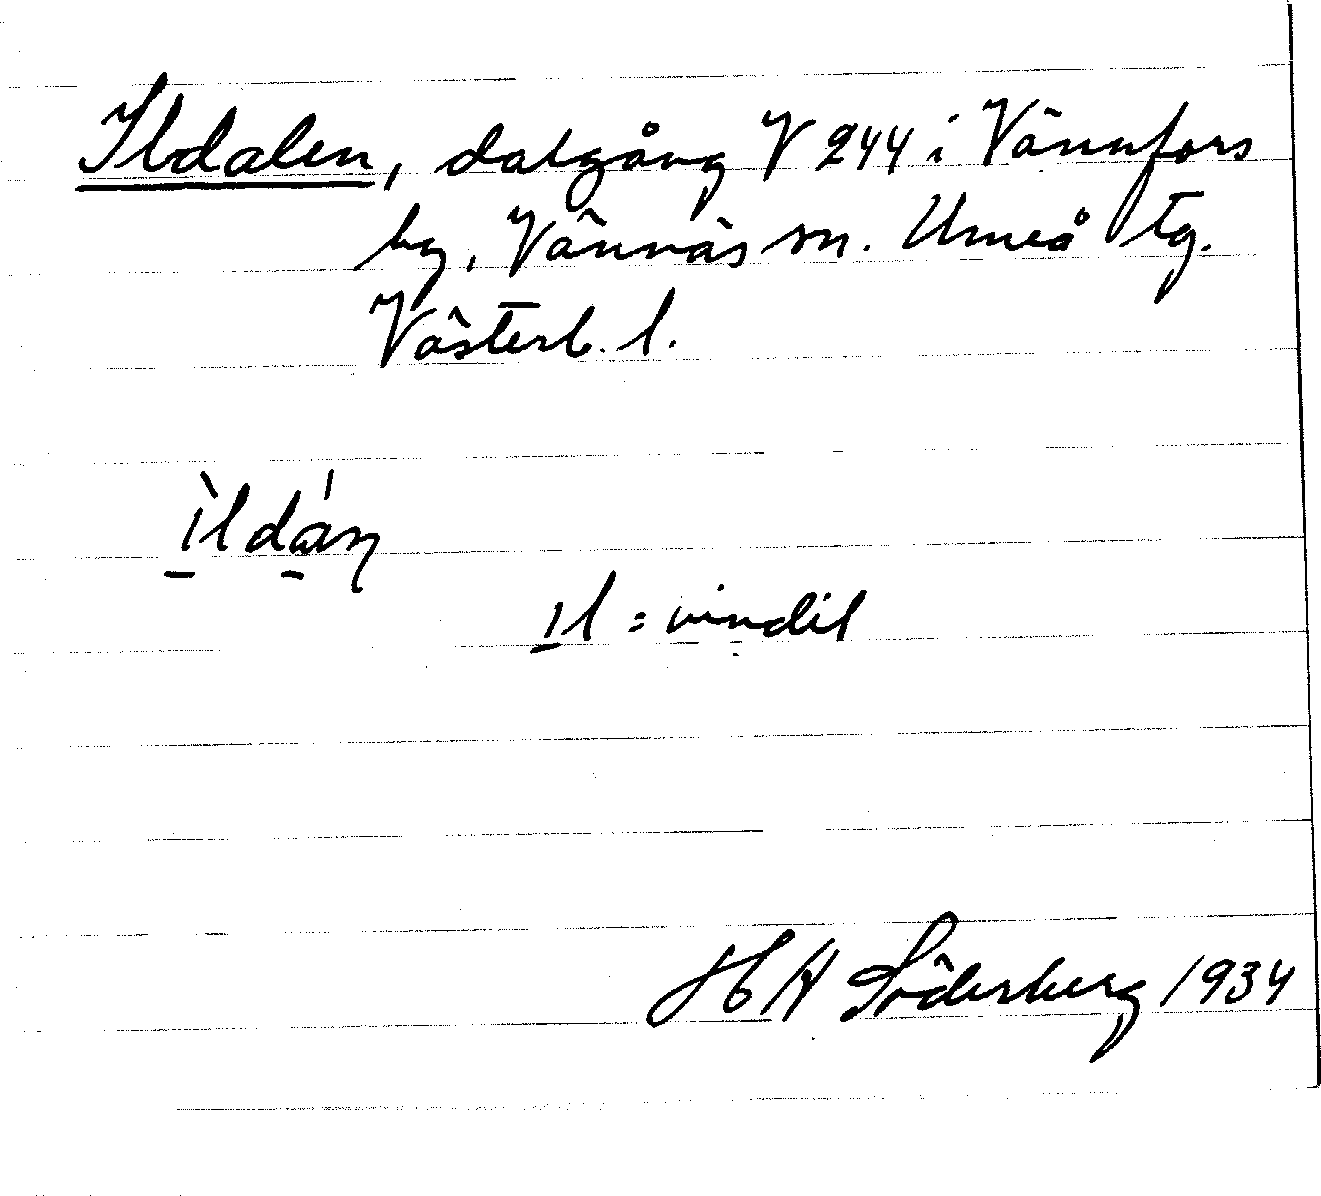 Ildalen, dalgång V 244 i Vännfors
by, Vännäs sn. Umeå tg.
Västerb. l.
ìldán
Il = vindil
H A Söderberg 1934